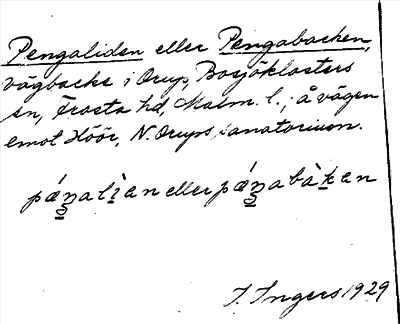 Pengaliden eller Pengabacken,
vägbacke i Orup, Bosjöklosters
sn, Frosta hd, Malm. l., å vägen
emot Höör, N. Orups sanatorium.
eller
I. Ingers 1929